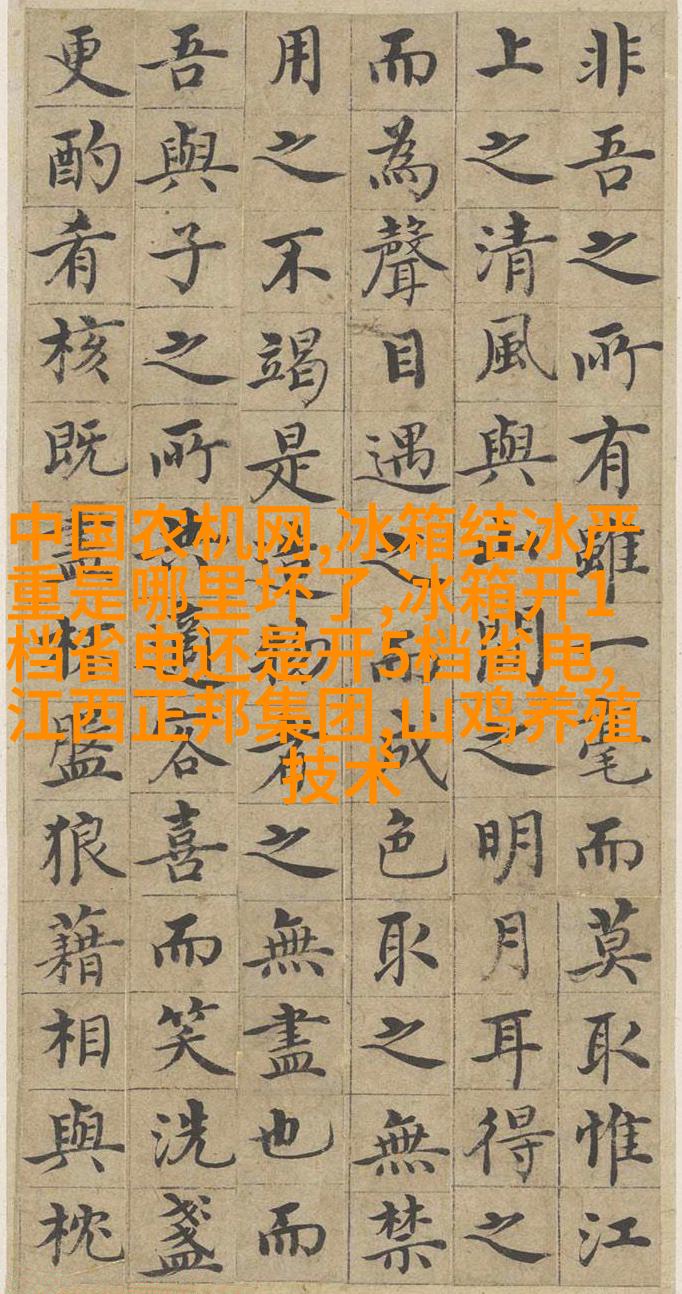 非吾之所有雖一毫而莫取惟江
上之清風與山間之明月耳得之
而為聲目遇之而成色取之無禁
用之不竭是造物者之無盡也而
吾與子之所共適客喜而笑洗盞
更酌肴核既盡杯盤狼藉相與枕
中国农机网,冰箱结冰严
重是哪里坏了,冰箱开1
档省电还是开5档省电,
江西正邦集团,山鸡养殖
技术